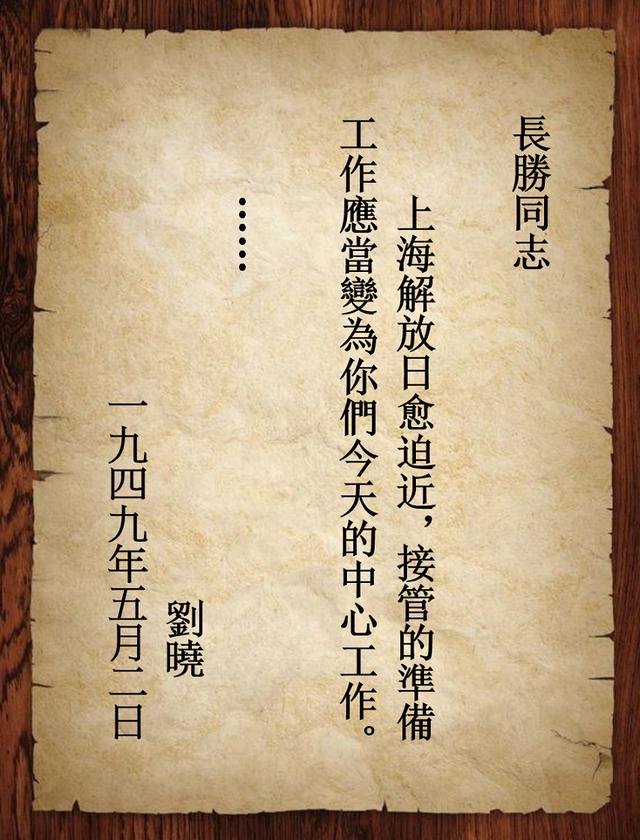 長勝同志
上海解放日愈迫近，接管的準備
工作應當變為你們今天的中心工作。
······
劉曉
一九四九年五月二日